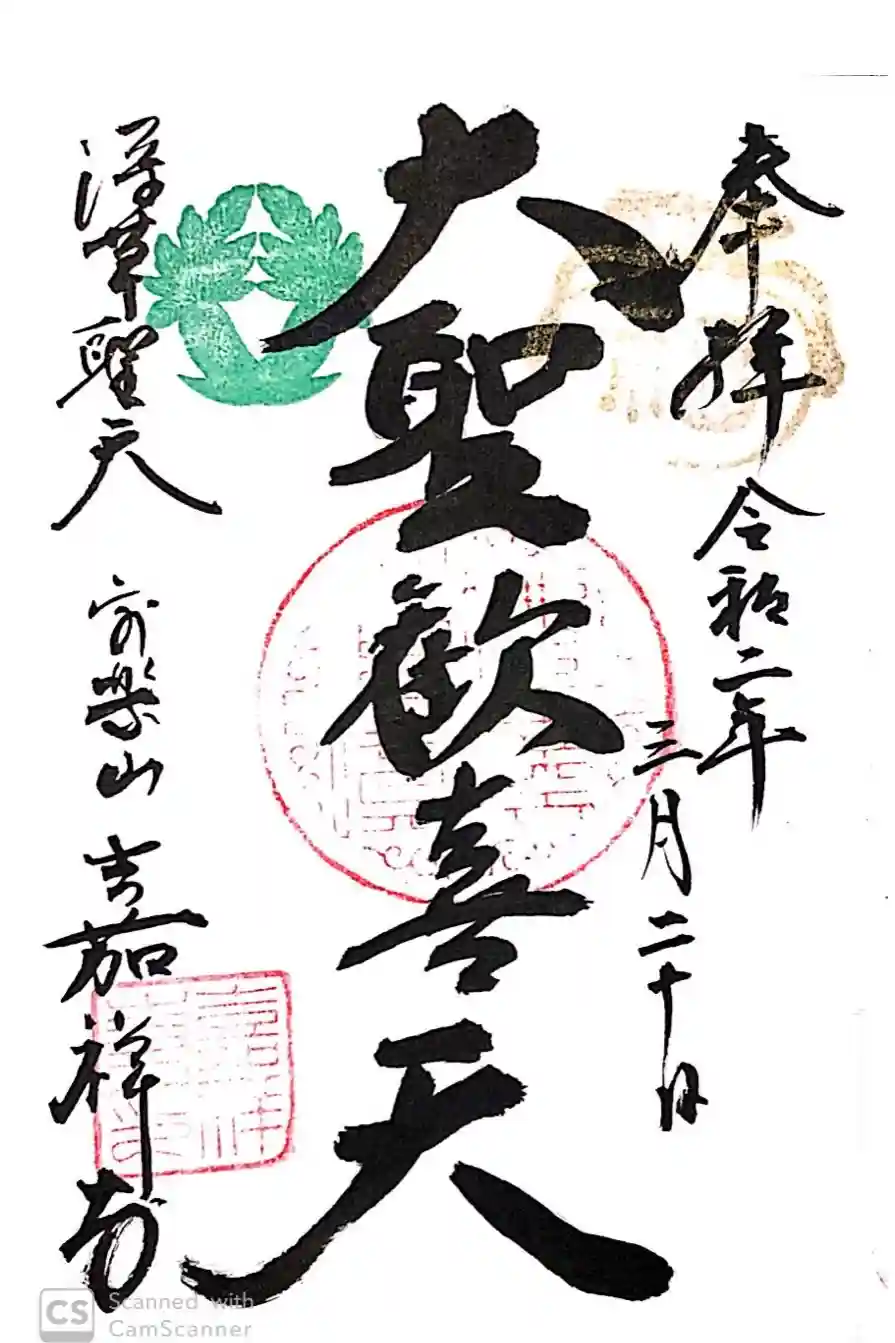 奉拝 令和二年
三月二十日
大聖歓喜天
深草聖天 嘉祥寺
Scanned with
CamScanner